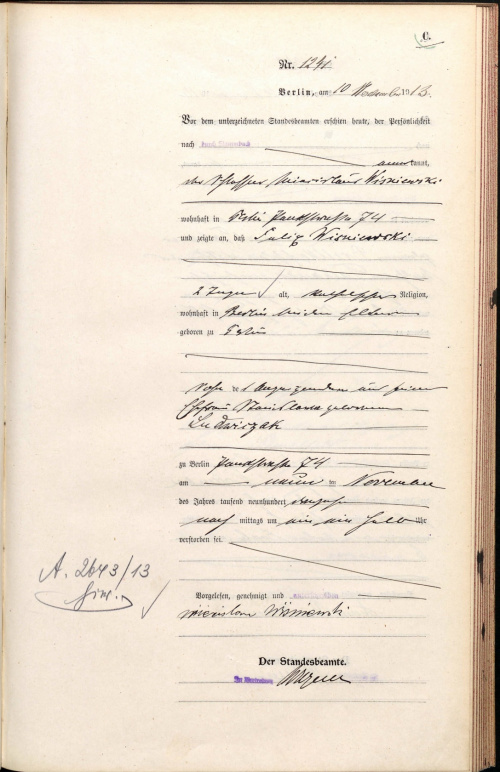 C.
Nr. 1241
Berlin, am 10 November 1913.
Vor dem unterzeichneten Standesbeamten erschien heute, der Persönlichkeit
nach
anerkannt,
der Schlosser Miecislaus Wisniewski
wohnhaft in Berlin Pankstraße 74
und zeigte an, daß Felix Wisniewski
2 Tage alt, katholischer Religion,
wohnhaft in Berlin bei den Eltern
geboren zu Berlin
Sohn des Anzeigenden und seiner
Ehefrau Stanislawa geborenen
Ludwiczak
zu Berlin Pankstraße 74
am neun ten November
des Jahres tausend neunhundert dreizehn
nach mittags um ein ein halb Uhr
verstorben sei.
A. 2643/13
Vorgelesen, genehmigt und
Miecislaus Wisniewski
Der Standesbeamte.